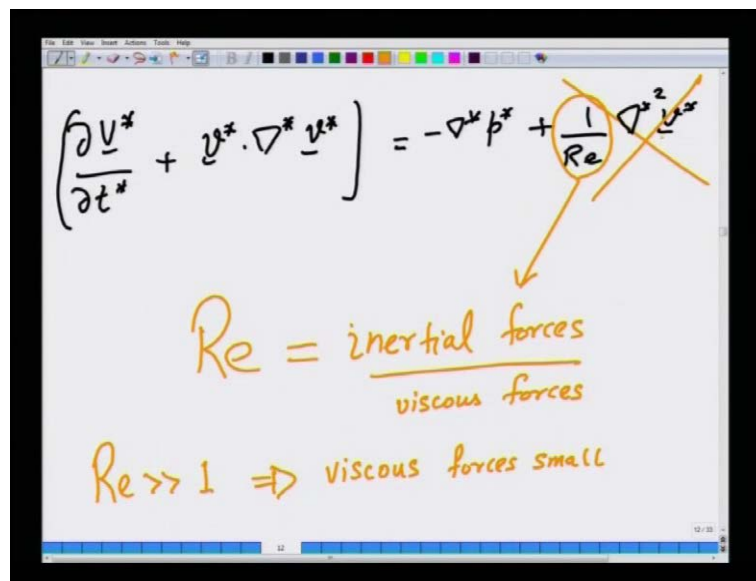 File Edit View Insert Actions Tools Help
[∂v*/∂t* + v*·∇* v*] = -∇*p* + 1/Re ∇*² v*
Re = inertial forces / viscous forces
Re >> 1 ⇒ viscous forces small
12 / 33
12